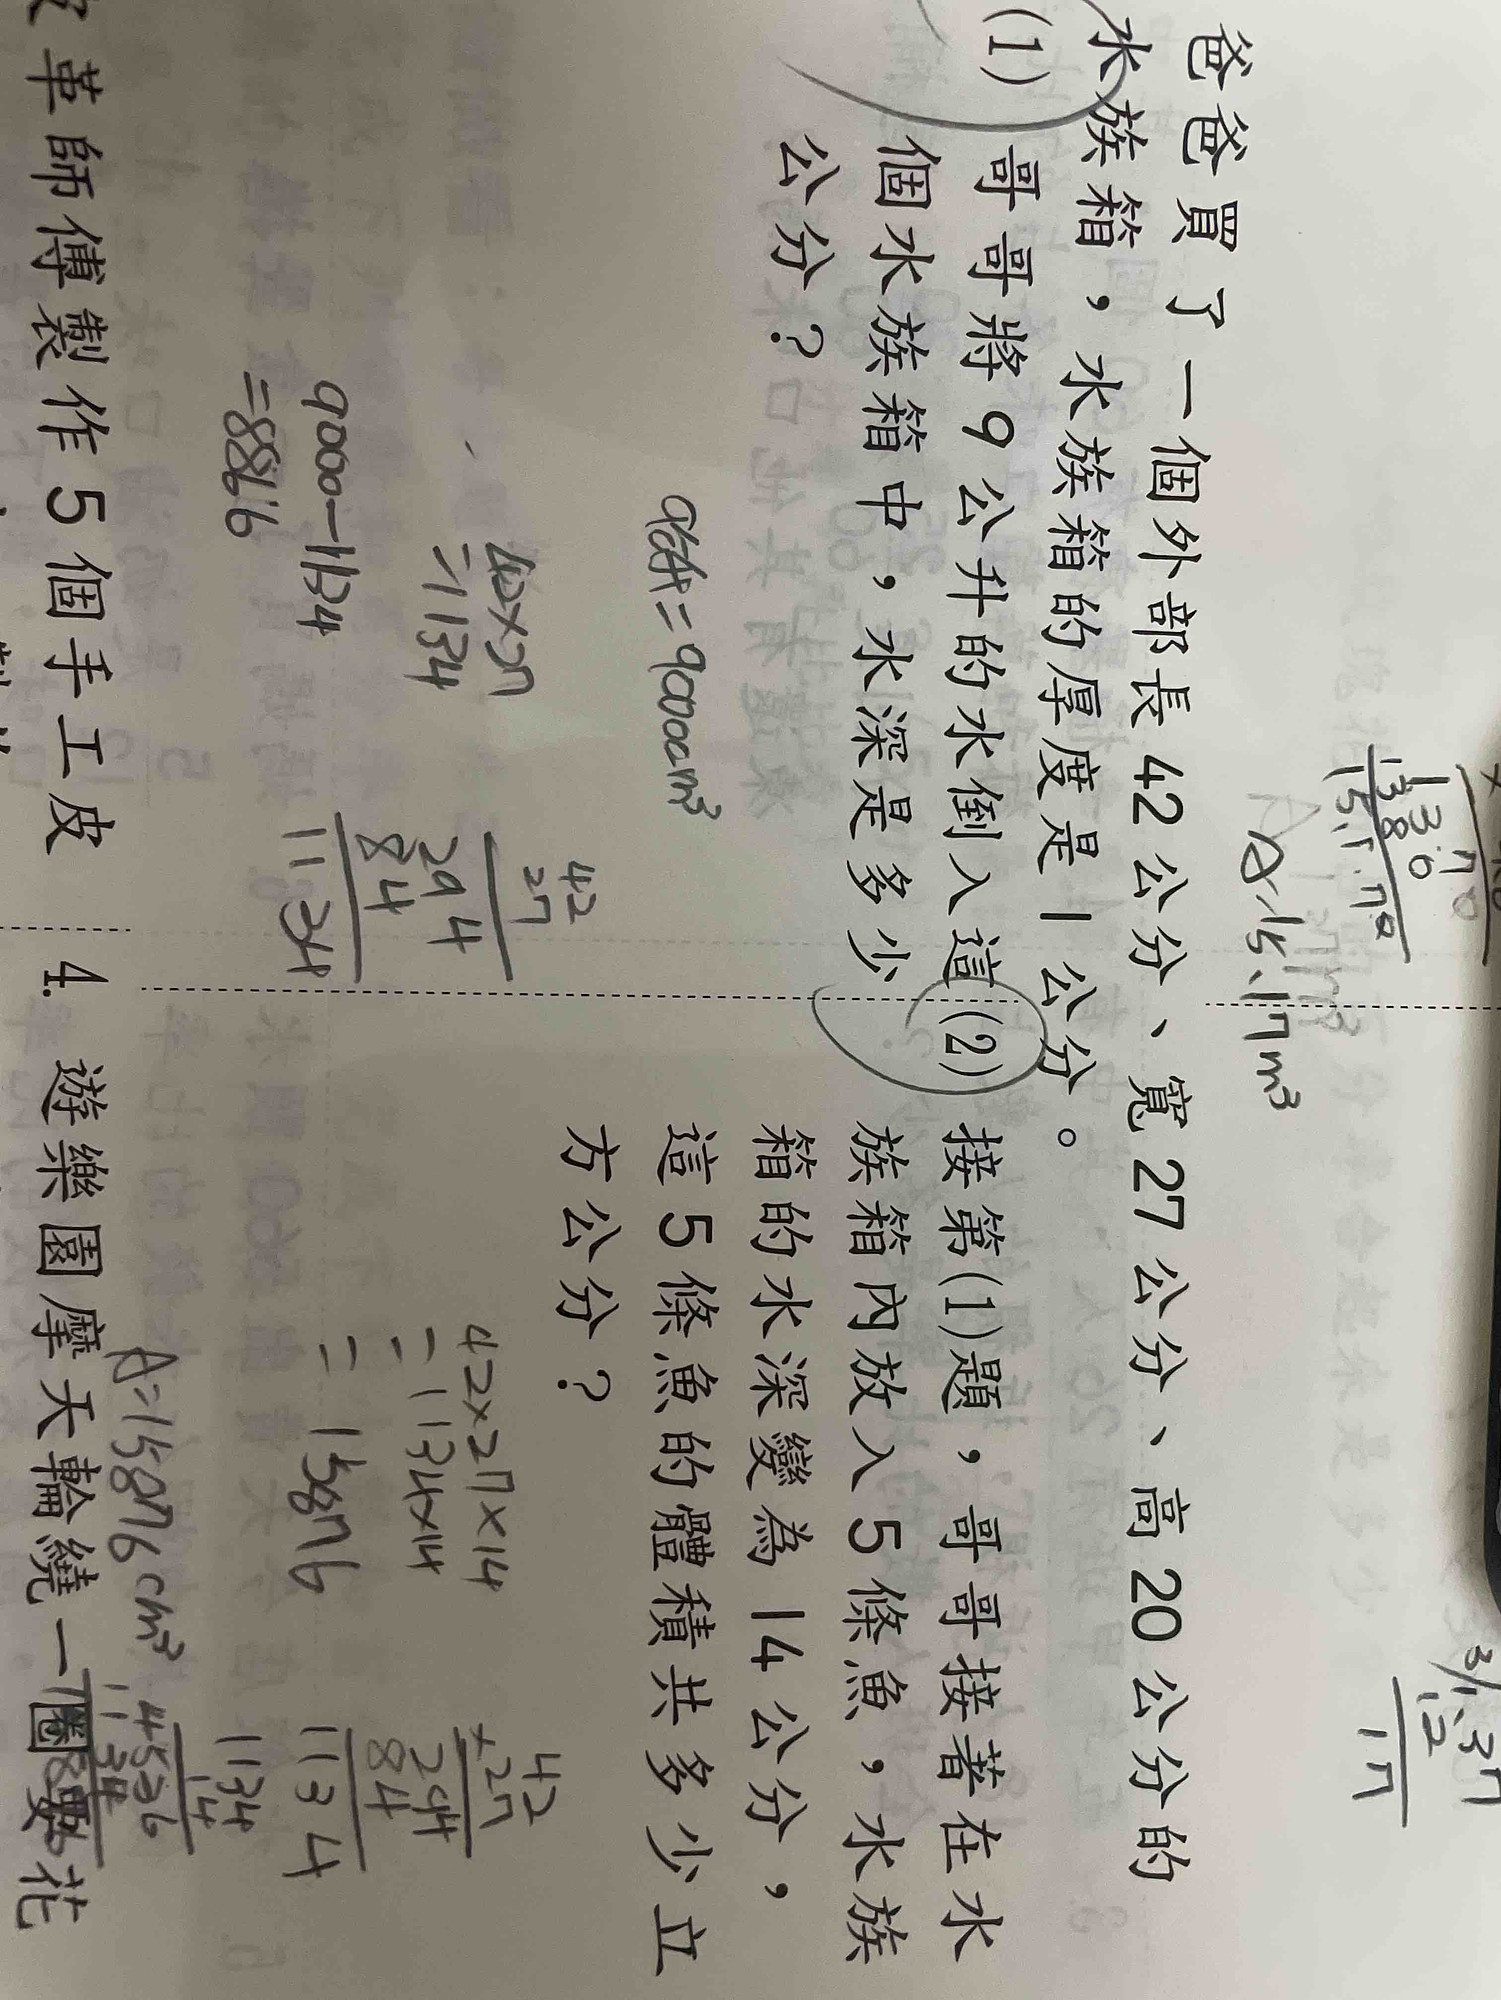 爸爸買了一個外部長42公分、寬27公分、高20公分的
水族箱，水族箱的厚度是1公分。
(1) 哥哥將9公升的水倒入這
個水族箱中，水深是多少
公分？
9公升=9000cm³
42×27
=1134
9000-1134
=8866
42
27
294
84
1134
(2) 接第(1)題，哥哥接著在水
族箱內放入5條魚，水族
箱的水深變為14公分，
這5條魚的體積共多少立
方公分？
42×27×14
=1134×14
=15876
A=15876cm³
42
×27
294
84
1134
1134
14
4536
1134
A=15.17m³
皮革師傅製作5個手工皮
4. 遊樂園摩天輪繞一圈要花